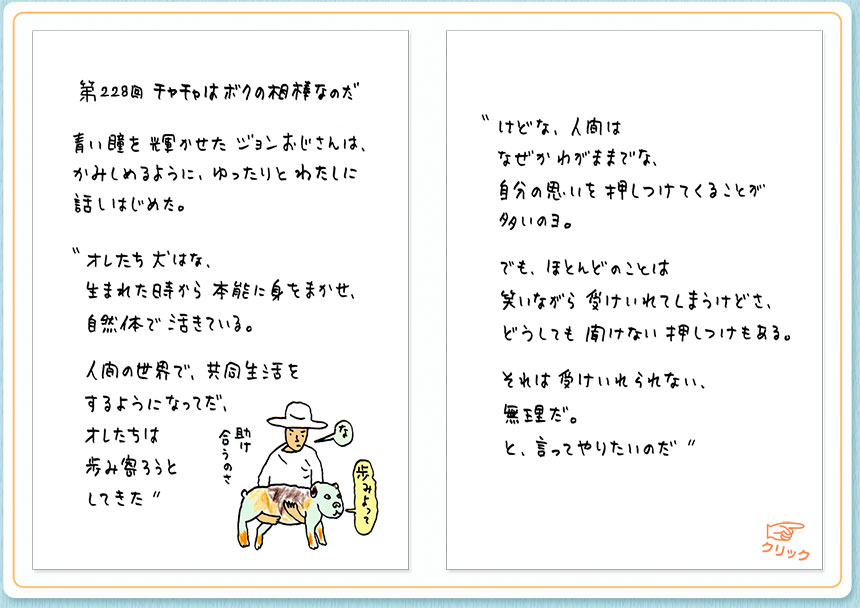 第228回 チャチャはボクの相棒なのだ
青い瞳を輝かせた ジョンおじさんは、
かみしめるように、ゆったりと わたしに
話しはじめた。
〝オレたち 犬はな、
生まれた時から 本能に身をまかせ、
自然体で 活きている。
人間の世界で、共同生活を
するようになってだ、
オレたちは
歩み寄ろうと
してきた〟
助け
合うのさ
な
歩みよって
〝けどな、人間は
なぜか わがままでな、
自分の思いを 押しつけてくることが
多いのヨ。
でも、ほとんどのことは
笑いながら 受けいれてしまうけどさ、
どうしても 聞けない 押しつけもある。
それは 受けいれられない、
無理だ。
と、言ってやりたいのだ〟
クリック